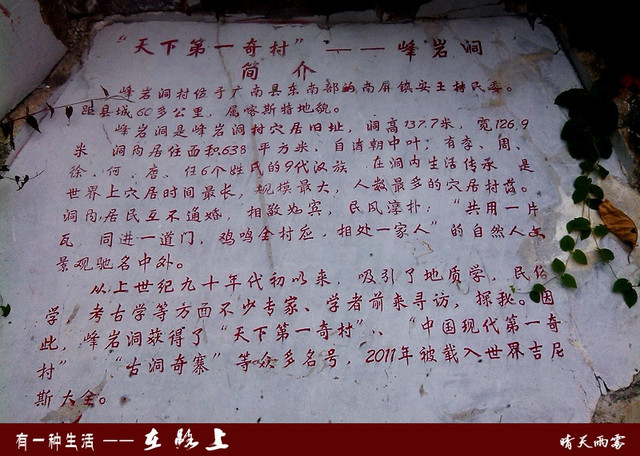 “天下第一奇村”——峰岩洞
简 介
峰岩洞村位于广南县东南部的南屏镇安王村民委。
距县城60多公里，属喀斯特地貌。
峰岩洞是峰岩洞村穴居旧址，洞高137.7米，宽126.9
米 洞内居住面积638平方米、自清朝中叶；有李、周、
徐、何、唐、任6个姓氏的9代汉族 在洞内生活传承 是
世界上穴居时间最长，规模最大，人数最多的穴居村落。
洞内居民互不通婚，相敬如宾，民风淳朴；“共用一片
瓦 同进一道门，鸡鸣全村应，相处一家人”的自然人文
景观驰名中外。
从上世纪九十年代初以来，吸引了地质学，民俗
学 考古学等方面不少专家、学者前来寻访，探秘。因
此，峰岩洞获得了“天下第一奇村”、“中国现代第一奇
村” “古洞奇寨”等众多名号，2011年被载入世界吉尼
斯大全。
有一种生活——在路上
晴天雨雾